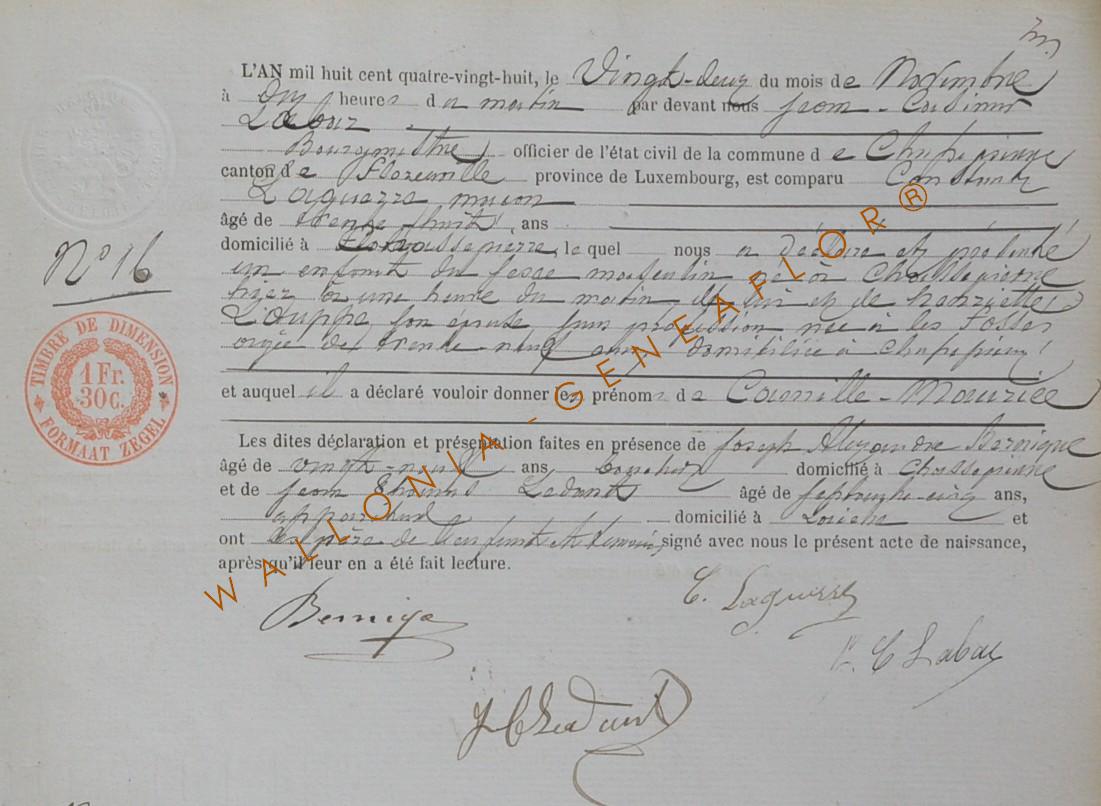 L'AN mil huit cent quatre-vingt-huit, le Vingt-deux du mois de Novembre
à Dix heures du matin par devant nous Jean-Casimir
Labar
Bourgmestre officier de l'état civil de la commune de Chassepierre
canton de Florenville province de Luxembourg, est comparu Constant
Laguerre maçon
âgé de trente huit ans
domicilié à Chassepierre, le quel nous a déclaré et présenté
N° 16
un enfant du sexe masculin né à Chassepierre
hier à une heure du matin, de lui et de henriette
son épouse, sans profession née à les Fosses
âgée de trente neuf ans, domiciliée à Chassepierre
et auquel il a déclaré vouloir donner les prénoms de Camille-Maurice
Les dites déclaration et présentation faites en présence de Joseph Alexandre Bernique
âgé de vingt-neuf ans domicilié à Chassepierre
et de Jean Ledant âgé de septante-cinq ans,
domicilié à et
ont les père de l'enfant et témoins signé avec nous le présent acte de naissance,
après qu'il leur en a été fait lecture.
TIMBRE DE DIMENSION
1 Fr.
30 c.
FORMAAT ZEGEL
WALLONIA-GENEAFLOR®
C. Laguerre
C Labar